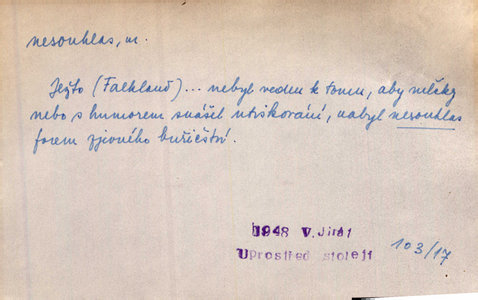 nesouhlas, m.
Ježto (Falkland) ... nebyl veden k tomu, aby mlčky
nebo s humorem snášel utiskování, nabyl nesouhlas
forem zjevného buřičství.
1948 V. Jirát
Uprostřed století
103/17